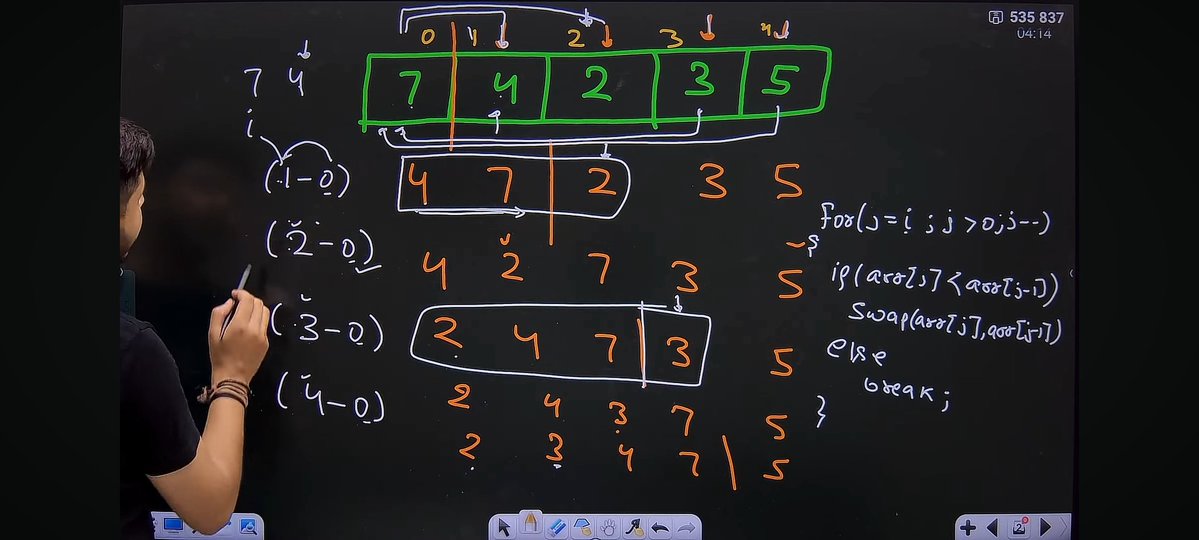 535 837
04:14
0 1 2 3 4
7 4
7 4 2 3 5
i
(1-0) 4 7 2 3 5
(2-0) 4 2 7 3 5
(3-0) 2 4 7 3 5
(4-0) 2 4 3 7 5
2 3 4 7 5
for(j=i ; j>0; j--)
{
if(arr[j]<arr[j-1])
swap(arr[j],arr[j-1])
else
break;
}
2